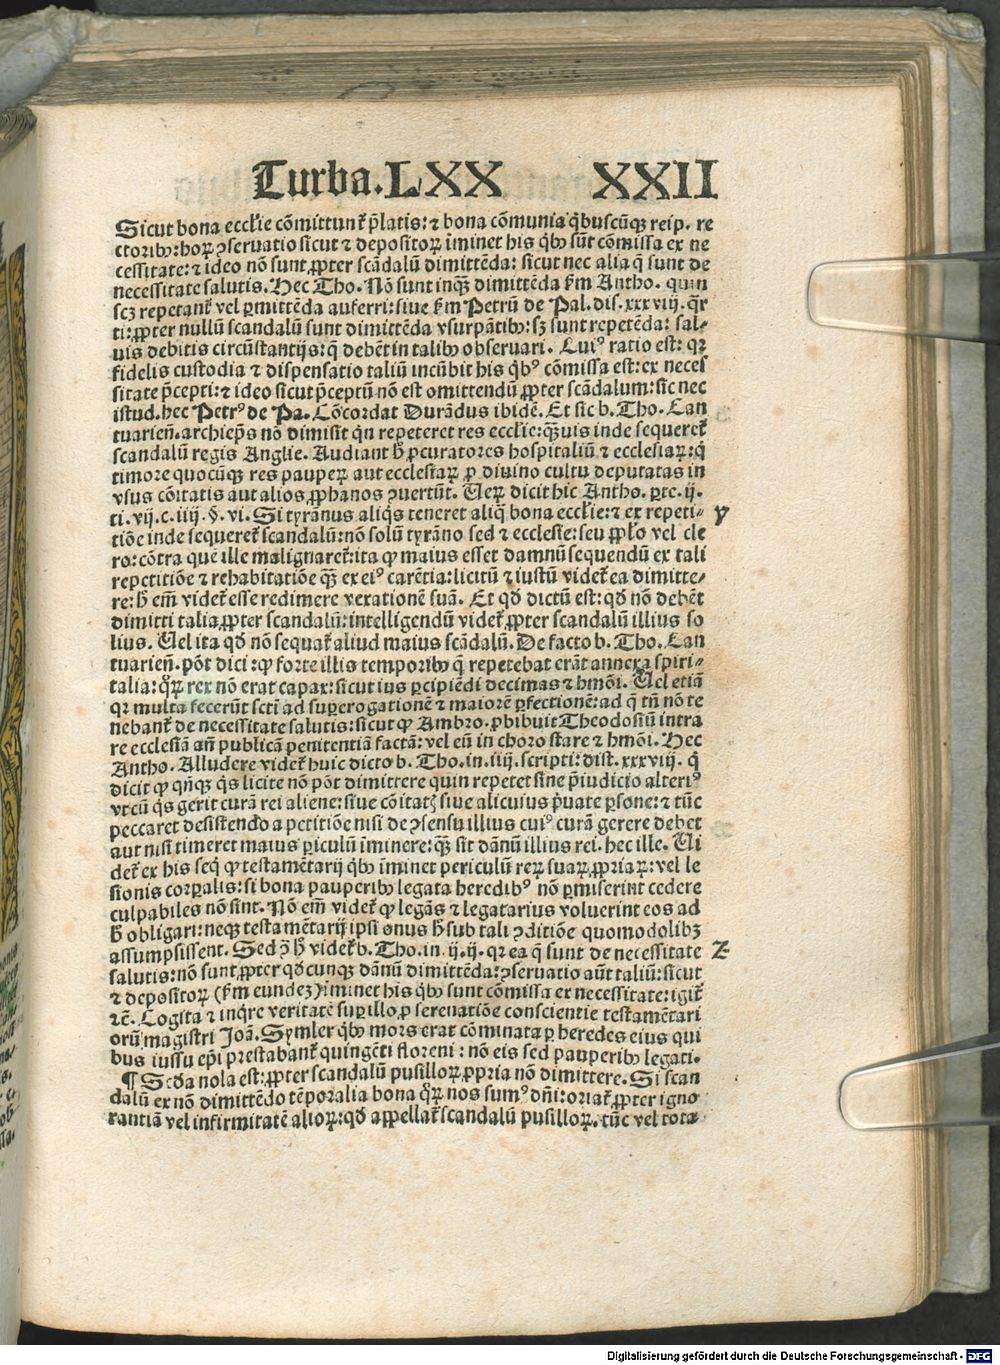 Turba. LXX XXII
Sicut bona eccłie cōmittunt᷑ p̄latis: ⁊ bona cōmunia q̇buscūqꝫ reip. re
ctoribꝰ: hoꝝ ꝯseruatio sicut ⁊ depositoꝝ īminet his qͥbꝰ sūt cōmissa ex ne
cessitate: ⁊ ideo nō sunt ꝓpter scādalū dimittēda: sicut nec alia q̄ sunt de
necessitate salutis. Hec Tho. Nō sunt inqͣꝫ dimittēda ẜm Antho. quin
scꝫ repetant᷑ vel ꝑmittēda auferri: siue ẜm Petrū de Pal. dis. xxxviij. qr̄
ti: ꝓpter nullū scandalū sunt dimittēda vsurpātibꝰ: sꝫ sunt repetēda: sal⸗
uis debitis circūstantijs: q̄ debēt in talibꝰ obseruari. Cuiꝰ ratio est: qꝛ
fidelis custodia ⁊ dispensatio taliū incūbit his qͥbꝰ cōmissa est: ex neces
sitate p̄cepti: ⁊ ideo sicut p̄ceptū nō est omittendū ꝓpter scādalum: sic nec
istud. hec Petrꝰ de Pa. Cōcordat Durādus ibidē. Et sic b. Tho. Can
tuarieñ. archiep̄s nō dimisit qn̄ repeteret res eccłie: qͣꝫuis inde sequeret᷑
scandalū regis Anglie. Audiant ħ ꝓcuratores hospitaliū ⁊ ecclesiaꝝ: qͥ
timore quocūqꝫ res pauperꝝ aut ecclesiaꝝ ꝓ diuino cultu deputatas in
vsus cōitatis aut alios ꝓphanos ꝯuertūt. Ueꝝ dicit hic Antho. ꝑte. ij.
ti. vij. c. iiij. §. vi. Si tyrānus aliqͥs teneret aliqͣ bona eccłie: ⁊ ex repeti⸗ y
tiōe inde sequeret᷑ scandalū: nō solū tyrāno sed ⁊ ecclesie: seu ꝓpło vel cle
ro: cōtra quē ille malignaret᷑: ita ꝙ maius esset damnū sequendū ex tali
repetitiōe ⁊ rehabitatiōe qͣꝫ ex eiꝰ carētia: licitū ⁊ iustū videt᷑ ea dimitte⸗
re: ħ em̄ videt᷑ esse redimere vexationē suā. Et qđ dictū est: qđ nō debēt
dimitti talia ꝓpter scandalū: intelligendū videt᷑ ꝓpter scandalū illius so
lius. Uel ita qđ nō sequat᷑ aliud maius scādalū. De facto b. Tho. Can
tuarieñ. pōt dici: ꝙ forte illis temporibꝰ q̄ repetebat erāt annexa spiri⸗
talia: qͦꝝ rex nō erat capax: sicut ius ꝑcipiēdi decimas ⁊ hmōi. Uel etiā
qꝛ multa fecerūt sctī ad suꝑerogationē ⁊ maiorē ꝑfectionē: ad q̄ tn̄ nō te
nebant᷑ de necessitate salutis: sicut ꝙ Ambro. ꝓhibuit Theodosiū intra
re ecclesiā an̄ publicā penitentiā factā: vel eū in choro stare ⁊ hmōi. Hec
Antho. Alludere videt᷑ huic dicto b. Tho. in. iiij. scripti: dist. xxxviij. qͥ
dicit ꝙ qn̄qꝫ qͥs licite nō pōt dimittere quin repetet sine p̄iudicio alteriꝰ
vtcū qͥs gerit curā rei aliene: siue cōitatꝭ siue alicuius p̄uate ꝑsone: ⁊ tūc
peccaret desistendo a petitiōe nisi de ꝯsensu illius cuiꝰ curā gerere debet
aut nisi timeret maius ꝑiculū īminere: qͣꝫ sit dānū illius rei. hec ille. Ui
det᷑ ex his seqͥ ꝙ testamētarij qͥbꝰ īminet periculū rerꝝ suaꝝ ꝓpriaꝝ: vel le
sionis corꝑalis: si bona pauperibꝰ legata heredibꝰ nō ꝑmiserint cedere
culpabiles nō sint. Nō em̄ videt᷑ ꝙ legās ⁊ legatarius voluerint eos ad
ħ obligari: neqꝫ testamētarij ipsi onus ħ sub tali ꝯditiōe quomodolibꝫ
assumpsissent. Sed ꝯ̄ ħ videt᷑ b. Tho. in. ij. ij. qꝛ ea q̄ sunt de necessitate z
salutis: nō sunt ꝓpter qđcunqꝫ dānū dimittēda: ꝯseruatio aūt taliū: sicut
⁊ depositoꝝ (ẜm eundeꝫ) īminet his qͥbꝰ sunt cōmissa ex necessitate: igit᷑
⁊c̄. Cogita ⁊ inqͥre veritatē suꝑ illo ꝓ serenatiōe conscientie testamētari
orū magistri Joā. Symler qͥbꝰ mors erat cōminata ꝑ heredes eius qui
bus iussu ep̄i prestabant᷑ quingēti floreni: nō eis sed pauperibꝰ legati.
¶ Scđa nola est: ꝓpter scandalū pusilloꝝ ꝓpria nō dimittere. Si scan
dalū ex nō dimittēdo tēporalia bona qͦꝝ nos sumꝰ dn̄i: oriat᷑ ꝓpter igno
rantiā vel infirmitatē alioꝝ: qđ appellat᷑ scandalū pusilloꝝ. tūc vel tota
Digitalisierung gefördert durch die Deutsche Forschungsgemeinschaft - DFG